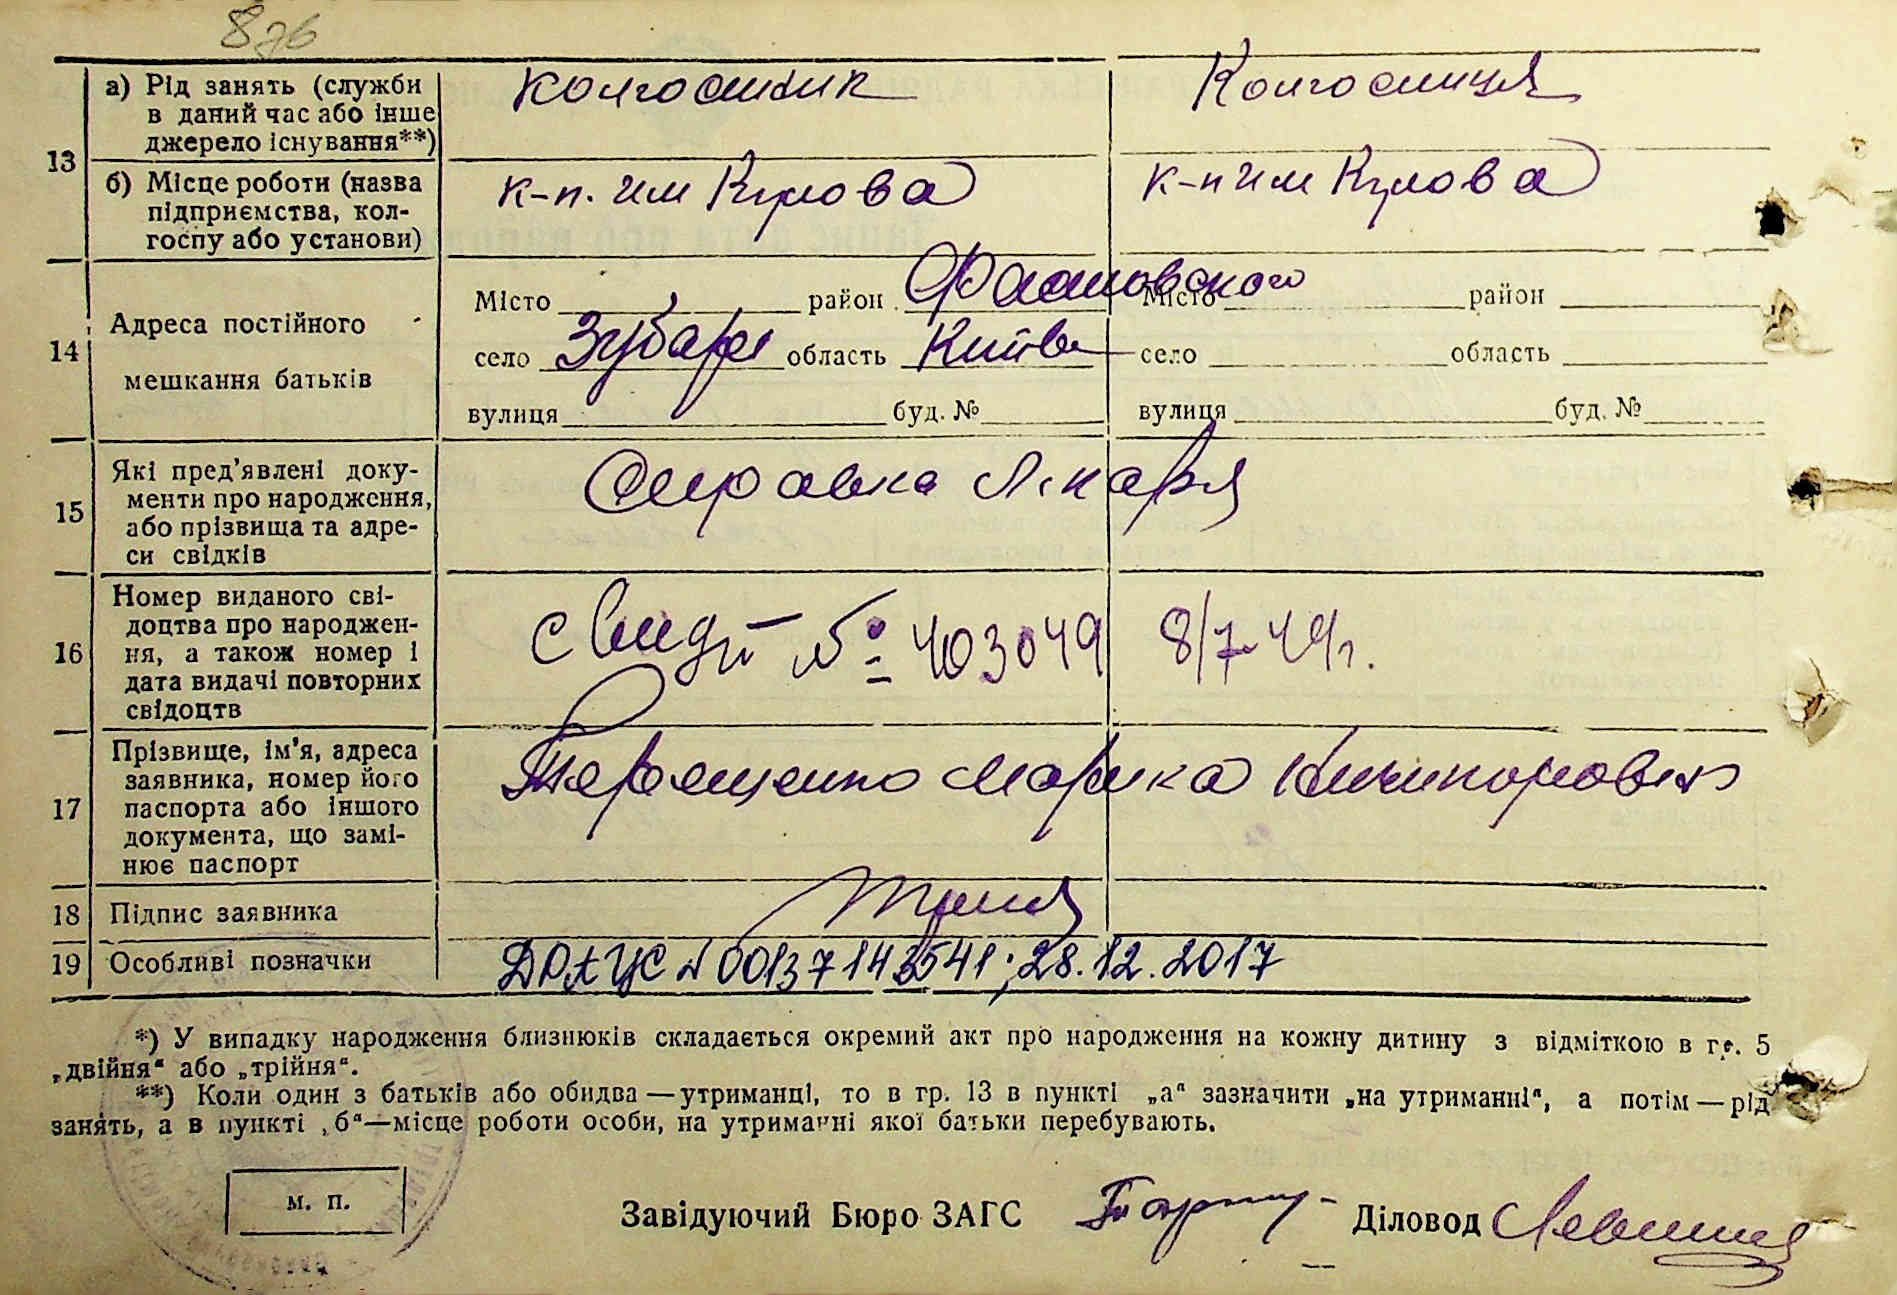 876
13
а) Рід занять (служби
в даний час або інше
джерело існування**)
колгоспник
Колгоспниця
б) Місце роботи (назва
підприємства, кол-
госпу або установи)
к-п. им Кірова
к-п им Кірова
14
Адреса постійного
мешкання батьків
Місто район Фастовского
село Зубарі область Київ
вулиця буд. №
Місто район
село область
вулиця буд. №
15
Які пред'явлені доку-
менти про народження,
або прізвища та адре-
си свідків
Справка лікаря
16
Номер виданого сві-
доцтва про народжен-
ня, а також номер і
дата видачі повторних
свідоцтв
свидт № 403049 8/7-49г.
17
Прізвище, ім'я, адреса
заявника, номер його
паспорта або іншого
документа, що замі-
нює паспорт
Терещенко Марка
18
Підпис заявника
19
Особливі позначки
ДРАЦС № 00137143541; 28.12.2017
*) У випадку народження близнюків складається окремий акт про народження на кожну дитину з відміткою в гр. 5
„двійня“ або „трійня“.
**) Коли один з батьків або обидва — утриманці, то в гр. 13 в пункті „а“ зазначити „на утриманні“, а потім — рід
занять, а в пункті „б“—місце роботи особи, на утриманні якої батьки перебувають.
м. п.
Завідуючий Бюро ЗАГС
Діловод